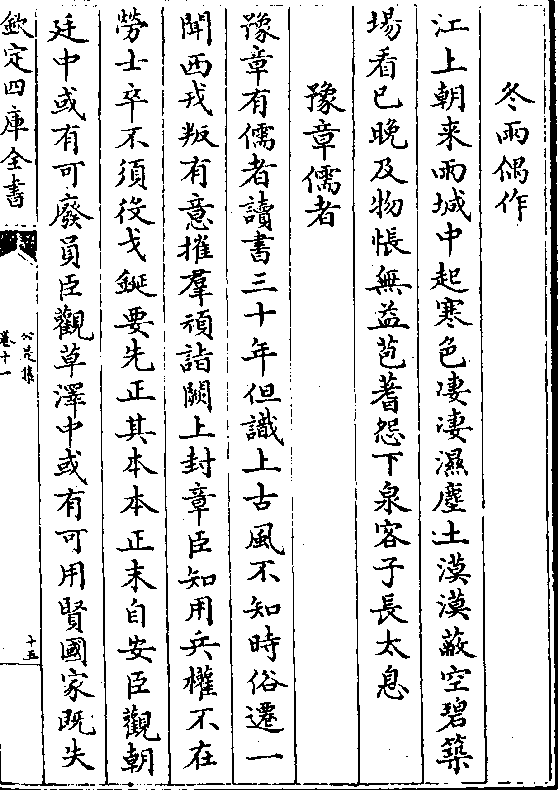 冬雨偶作
江上朝来雨城中起寒色凄凄濕塵土漠漠蔽空碧築
場看已晚及物悵無益苞蓍怨下泉客子長太息
豫章儒者
豫章有儒者讀書三十年但識上古風不知時俗遷一
聞西戎叛有意摧羣頑詣闕上封章臣知用兵權不在
勞士卒不須役戈鋋要先正其本本正末自安臣觀朝
廷中或有可廢員臣觀草澤中或有可用賢國家既失
欽定四庫全書
公是集
卷十一
十五